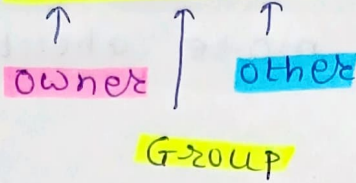 owner other
Group